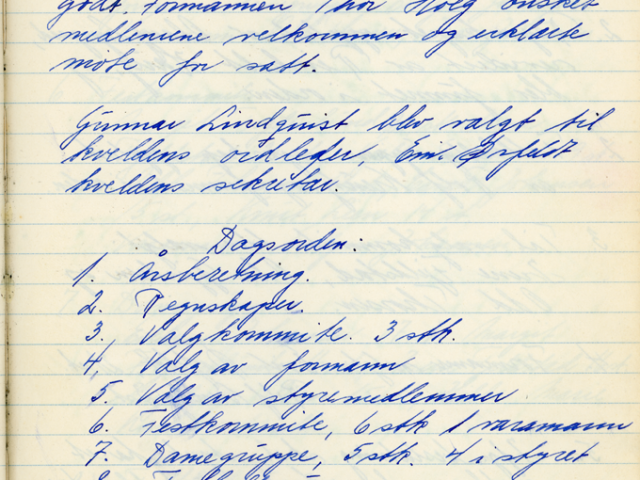 godt. Formannen Thor Høeg ønsket
medlemene velkommen og erklærte
møte for satt.
Gunnar Lindquist blev valgt til
kveldens ordleder, Em. Ørfeldt
kveldens sekretær.
Dagsorden:
1. Årsberetning.
2. Regnskaper.
3. Valgkommite. 3 stk.
4. Valg av formann
5. Valg av styremedlemmer
6. Festkommite, 6 stk 1 varamann
7. Damegruppe, 5 stk. 4 i styret